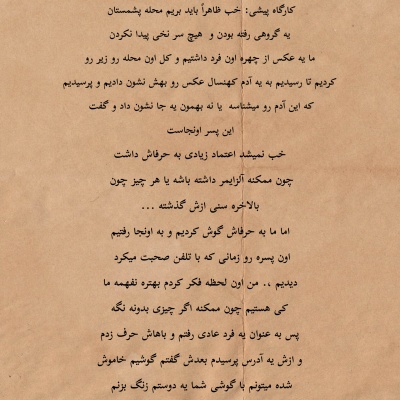 کارگاه پیشی: خب ظاهراً باید بریم محله پشمستان
یه گروهی رفته بودن و هیچ سر نخی پیدا نکردن
ما یه عکس از چهره اون فرد داشتیم و کل اون محله رو زیر رو
کردیم تا رسیدیم به یه آدم کهنسال عکس رو بهش نشون دادیم و پرسیدیم
که این آدم رو میشناسه یا نه بهمون یه جا نشون داد و گفت
این پسر اونجاست
خب نمیشد اعتماد زیادی به حرفاش داشت
چون ممکنه آلزایمر داشته باشه یا هر چیز چون
بالاخره سنی ازش گذشته ...
اما ما به حرفاش گوش کردیم و به اونجا رفتیم
اون پسره رو زمانی که با تلفن صحبت میکرد
دیدیم .. من اون لحظه فکر کردم بهتره نفهمه ما
کی هستیم چون ممکنه اگر چیزی بدونه نگه
پس به عنوان یه فرد عادی رفتم و باهاش حرف زدم
و ازش یه آدرس پرسیدم بعدش گفتم گوشیم خاموش
شده میتونم با گوشی شما یه دوستم زنگ بزنم